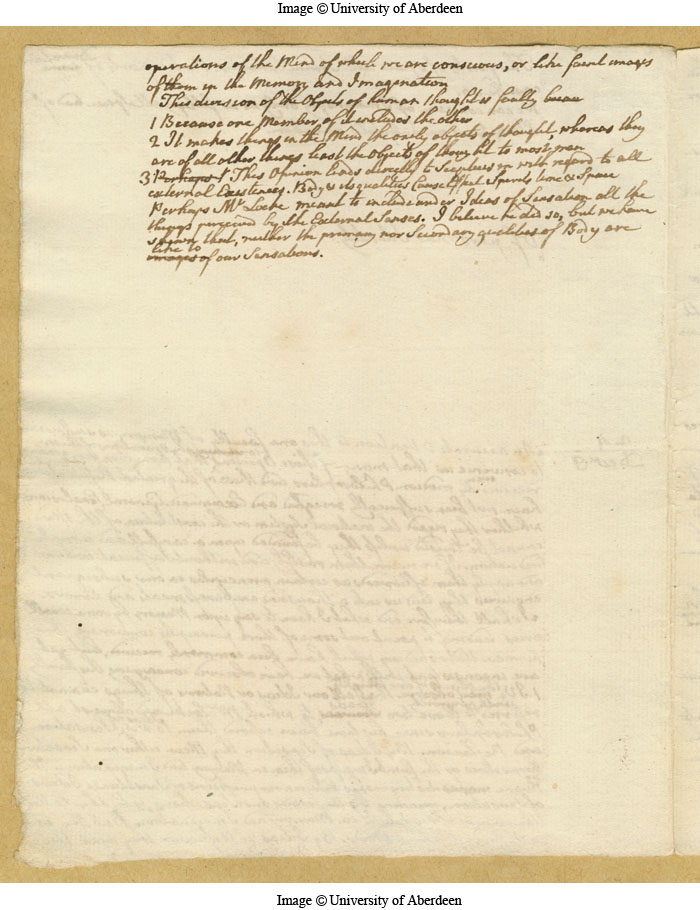 Image © University of Aberdeen
operations of the Mind of which we are conscious, or like faint images
of them in the Memory and Imagination
This division of the Objects of human thought is faulty because
1 Because one Member of it includes the other
2 It makes things in the Mind the only objects of thought, whereas they
are of all other things least the Objects of thought to most men
3 Perhaps This Opinion leads directly to Scepticism with regard to all
external Existences. Body & its qualities
Perhaps Mr Locke meant to include under Ideas of Sensation all the
things perceived by the External Senses. I believe he did so, but we have
shewn that, neither the primary nor Secondary qualities of Body are
like to
images of our Sensations.
Image © University of Aberdeen